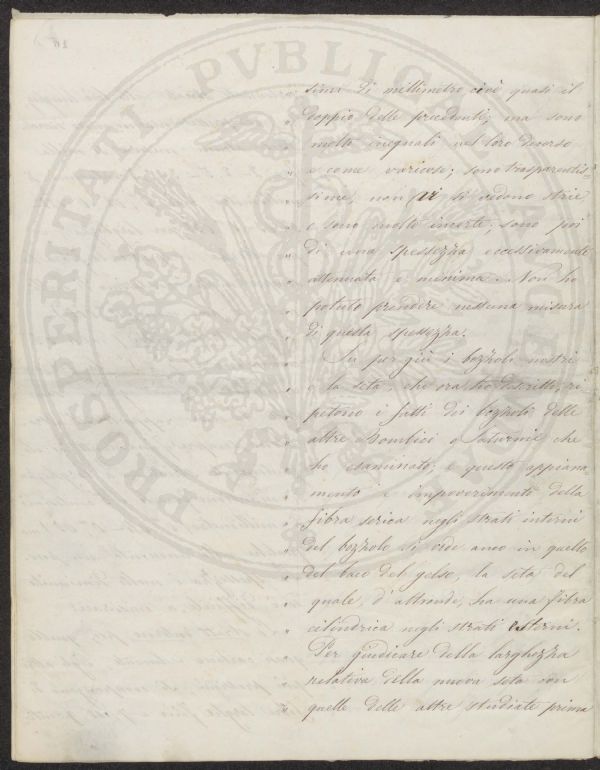 PROSPERITATI PVBLICAE
simi di millimetro cioè quasi il
doppio delle precedenti; ma sono
molto ineguali nel loro decorso
e come varicose; sono trasparentis-
sime, non vi si vedono strie
e sono molto incerte; sono poi
di una spessezza eccessivamente
attenuata e minima. Non ho
potuto prendere nessuna misura
di questa spessezza.
Su per giù i bozzoli nostri
e la seta, che ora ho descritti, ri-
petono i fatti dei bozzoli delle
altre Bombici o Saturnie che
ho esaminato; e questo appiana
mento e impoverimento della
fibra serica negli strati interni
del bozzolo si vede anco in quello
del baco del gelso, la seta del
quale, d'altronde, ha una fibra
cilindrica negli strati esterni.
Per giudicare della larghezza
relativa della nuova seta con
quelle delle altre studiate prima